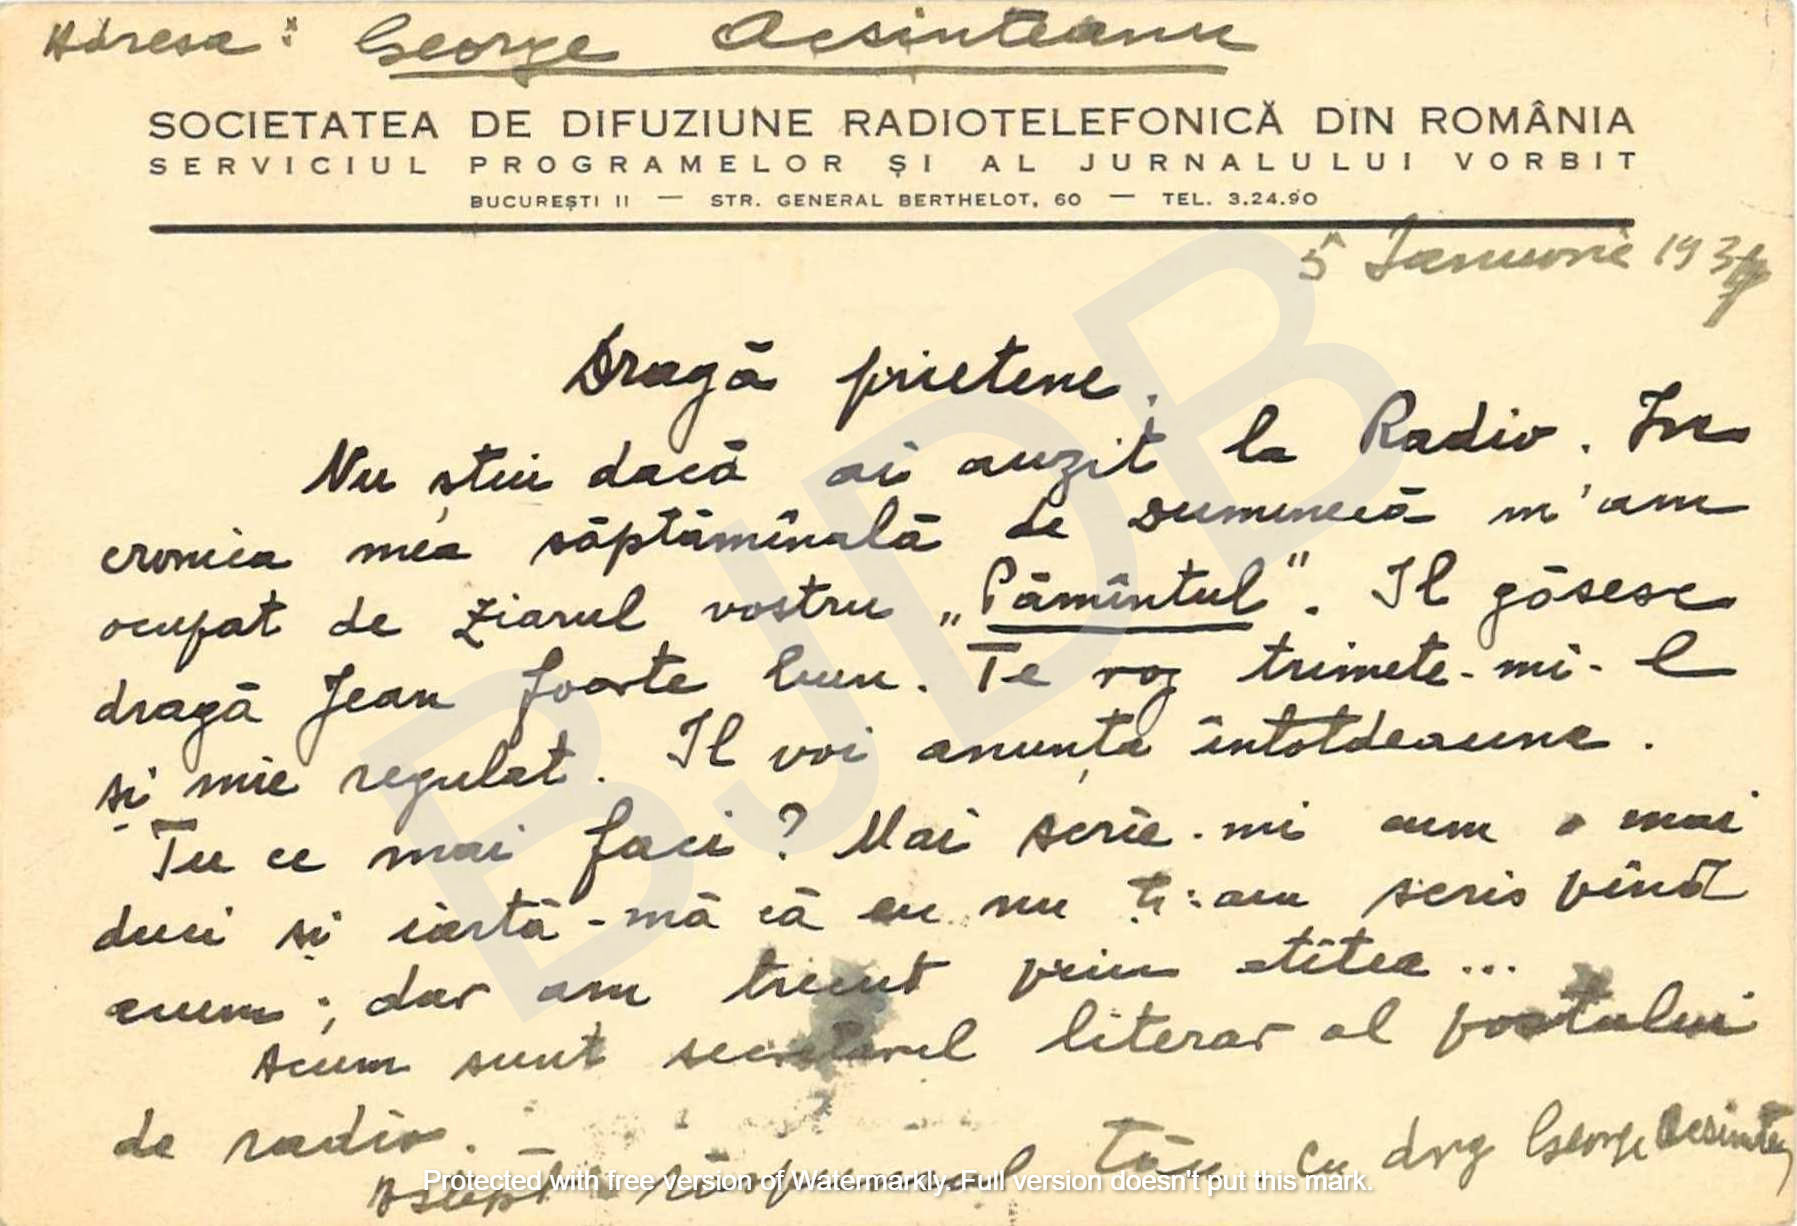 Adresa: George Acsinteanu
SOCIETATEA DE DIFUZIUNE RADIOTELEFONICĂ DIN ROMÂNIA
SERVICIUL PROGRAMELOR ȘI AL JURNALULUI VORBIT
BUCUREȘTI II — STR. GENERAL BERTHELOT, 60 — TEL. 3.24.90
5 Ianuarie 193
Dragă prietene,
Nu știu dacă ai auzit la Radio. In
cronica mea săptămînală de Duminecă m'am
ocupat de ziarul vostru „Pămîntul". Il găsesc
dragă Jean foarte bun. Te rog trimete-mi-l
și mie regulat. Il voi anunța întotdeauna.
Tu ce mai faci? Mai scrie-mi cum o mai
duci și iartă-mă că eu nu ți-am scris pînă
acum; dar am trecut prin atîtea...
Acum sunt secretarul literar al postului
de radio.
Aștept răspunsul tău cu drag George Acsinteanu
BJDB
Protected with free version of Watermarkly. Full version doesn't put this mark.